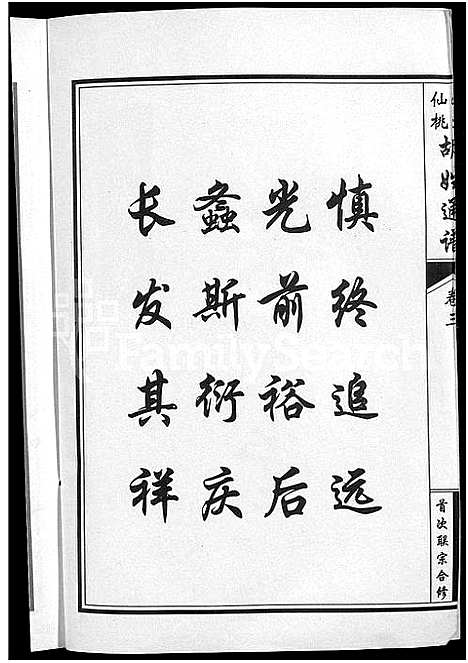 仙桃
胡姓通谱
卷三
首次联宗合修
慎终追远
光前裕后
螽斯衍庆
长发其祥
FamilySearch